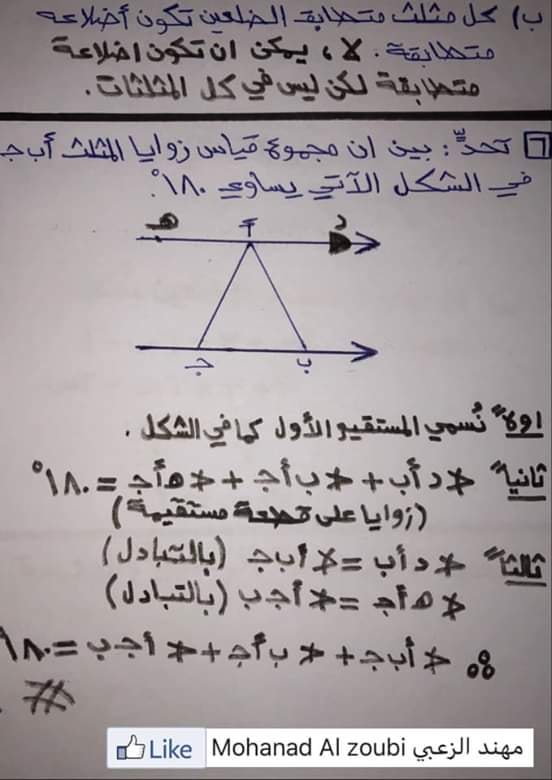 ب) كل مثلث متطابق الضلعين تكون أضلاعه
متطابقة. لا، يمكن ان تكون اضلاعة
متطابقة لكن ليس في كل المثلثات.
٦ تحدٍّ: بين ان مجموع قياس زوايا المثلث أ ب جـ
في الشكل الآتي يساوي ١٨٠°.
هـ أ د
جـ ب
اولاً نُسمي المستقيم الأول كما في الشكل.
ثانياً ∢ د أ ب + ∢ ب أ جـ + ∢ هـ أ جـ = ١٨٠°
(زوايا على قطعة مستقيمة)
ثالثاً ∢ د أ ب = ∢ أ ب جـ (بالتبادل)
∢ هـ أ جـ = ∢ أ جـ ب (بالتبادل)
∴ ∢ أ ب جـ + ∢ ب أ جـ + ∢ أ جـ ب = ١٨٠
Like Mohanad Al zoubi مهند الزعبي